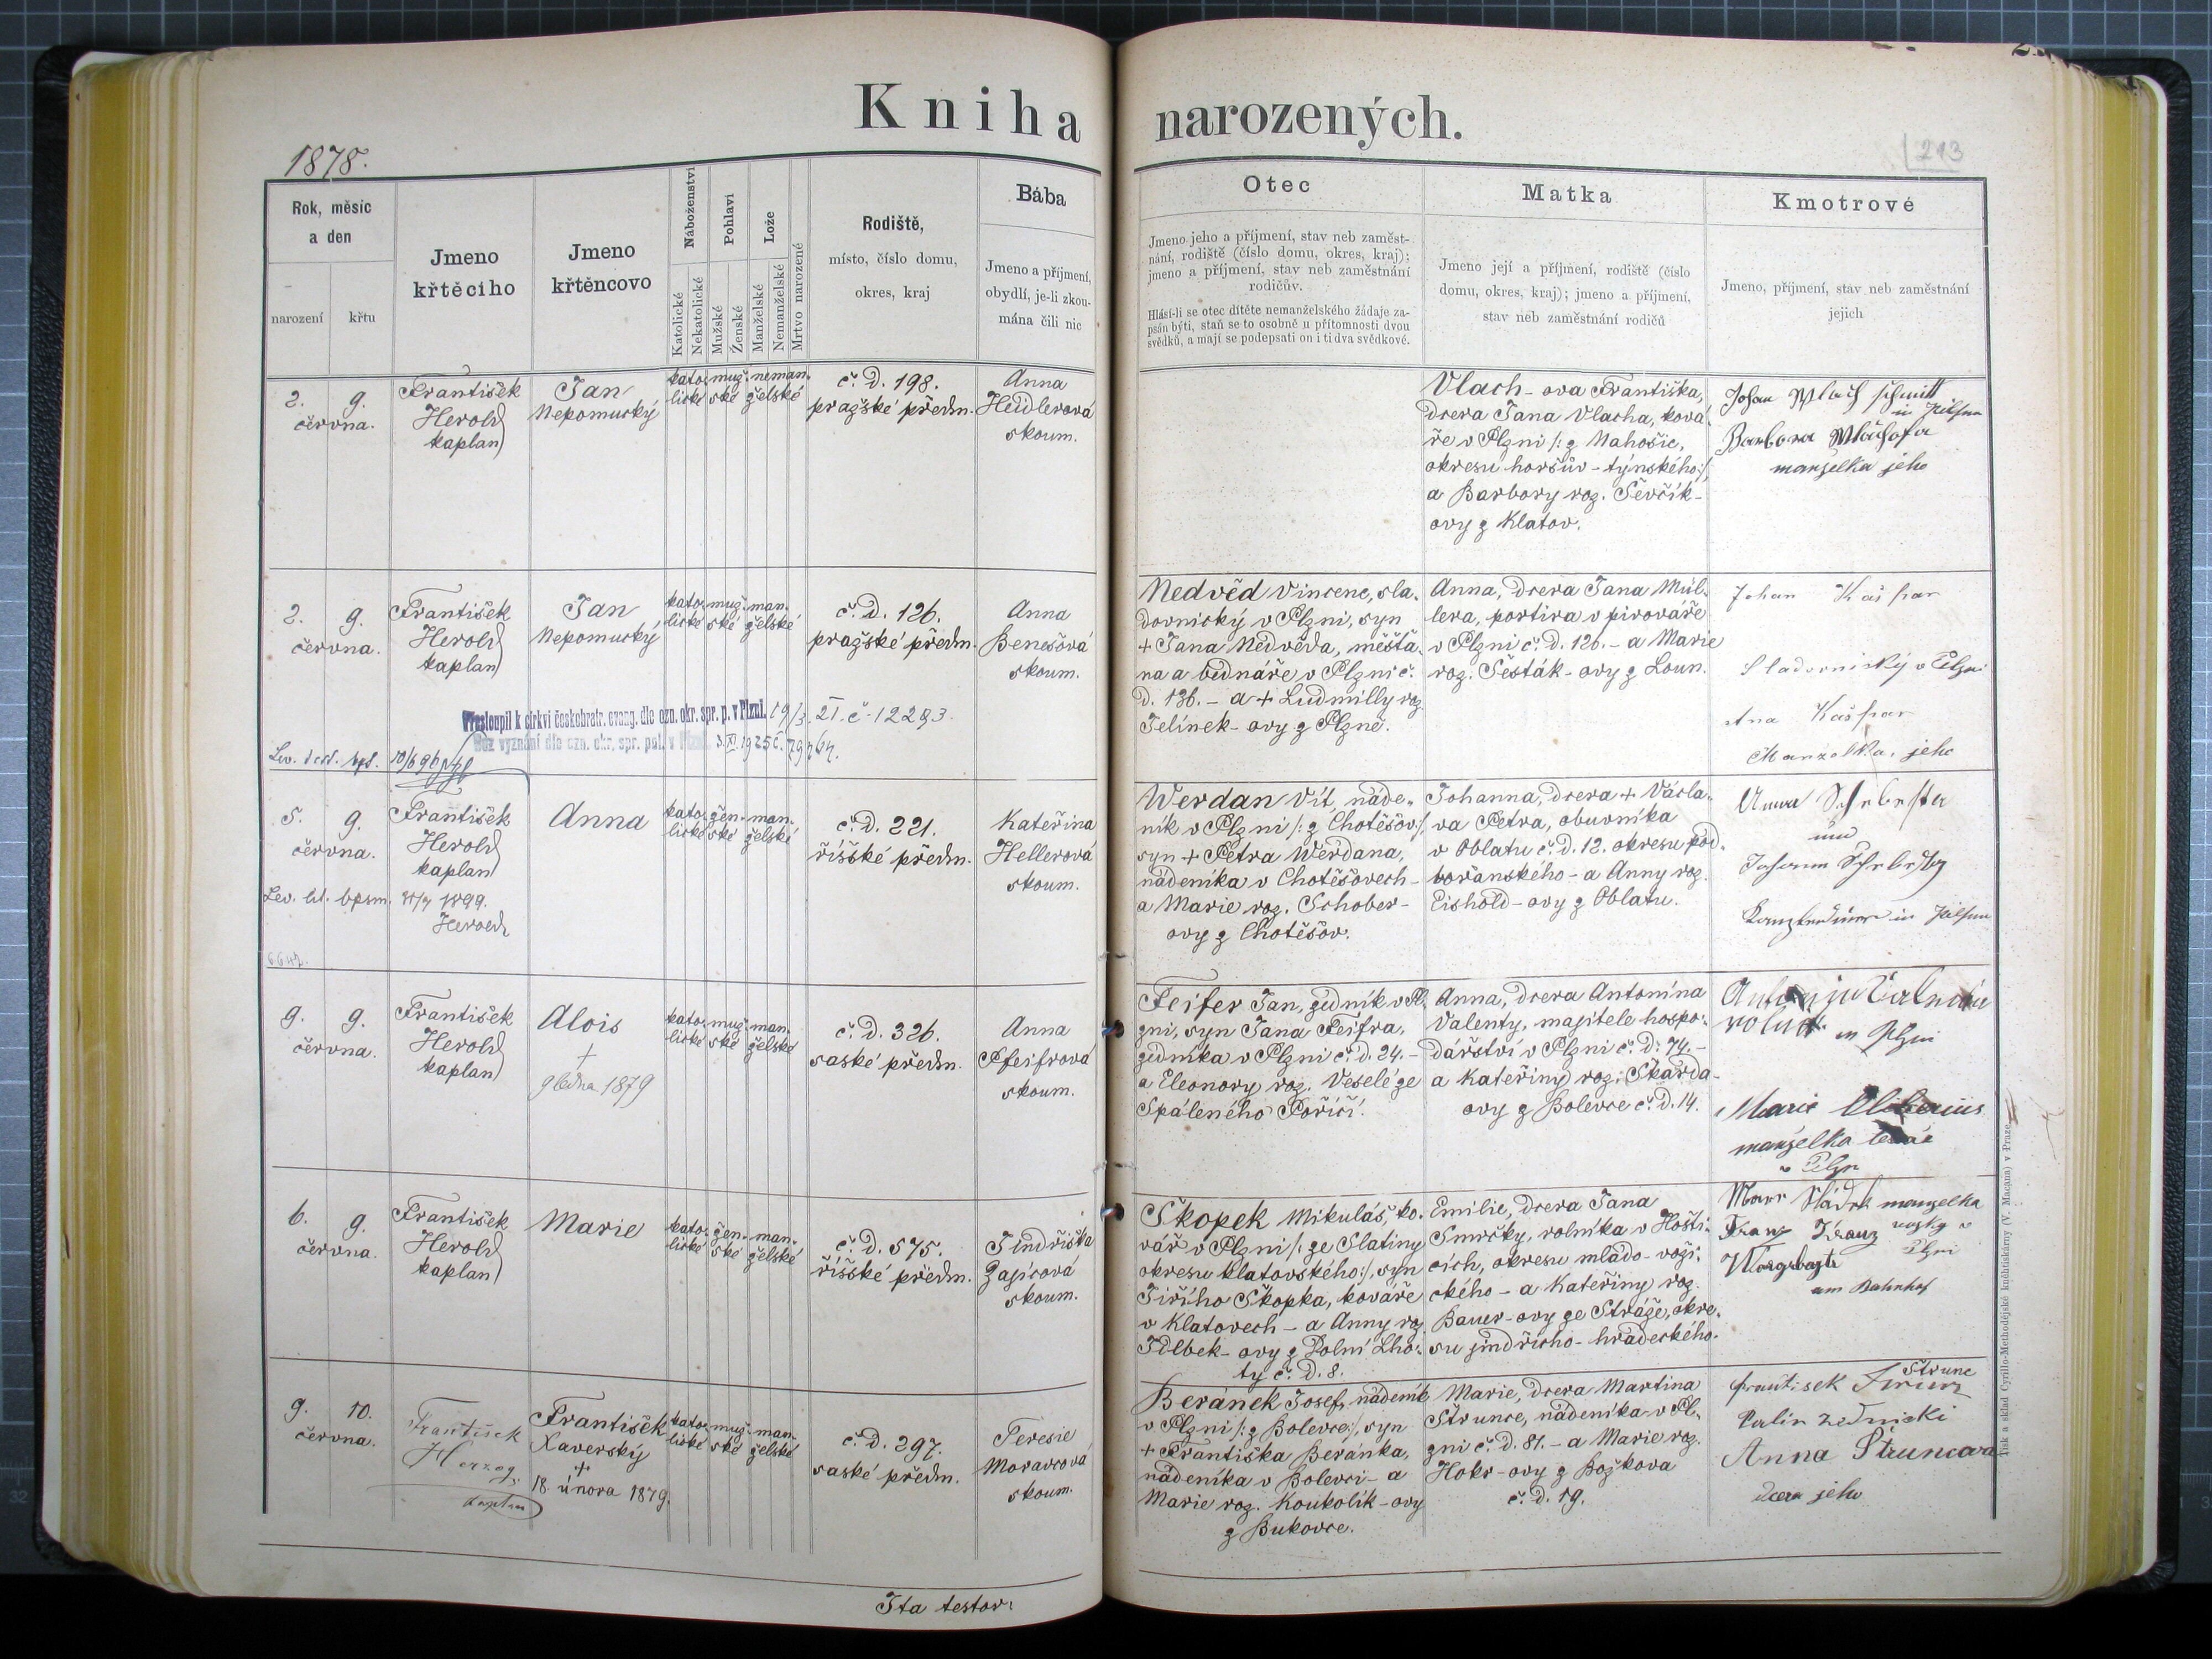 Kniha narozených.
1878.
213
Rok, měsíc
a den
narození
křtu
Jmeno
křtěcího
Jmeno
křtěncovo
Náboženství
Katolické
Nekatolické
Pohlaví
Mužské
Ženské
Lože
Manželské
Nemanželské
Mrtvo narozené
Rodiště,
místo, číslo domu,
okres, kraj
Bába
Jmeno a příjmení,
obydlí, je-li zkou-
mána čili nic
Otec
Jmeno jeho a příjmení, stav neb zaměst-
nání, rodiště (číslo domu, okres, kraj);
jmeno a příjmení, stav neb zaměstnání
rodičův.
Hlásí-li se otec dítěte nemanželského žádaje za-
psán býti, staň se to osobně u přítomnosti dvou
svědků, a mají se podepsati on i ti dva svědkové.
Matka
Jmeno její a příjmení, rodiště (číslo
domu, okres, kraj); jmeno a příjmení,
stav neb zaměstnání rodičů
Kmotrové
Jmeno, příjmení, stav neb zaměstnání
jejich
2. 9.
června.
František
Herold
kaplan
Jan
Nepomucký
kato-
lické
muž-
ské
neman-
želské
č. d. 198.
pražské předm.
Anna
Heidlerová
skoum.
Vlach-ova Františka,
dcera Jana Vlacha, ková-
ře v Plzni /: z Nahošic,
okresu horšův-týnského:/,
a Barbory roz. Ševčík-
ovy z Klatov.
Johan Wlach schmitt
in Pilsen
Barbora Wlachofa
manzelka jeho
2. 9.
června.
František
Herold
kaplan
Jan
Nepomucký
kato-
lické
muž-
ské
man-
želské
č. d. 126.
pražské předm.
Anna
Benešová
skoum.
Nedvěd Vincenc, sla-
dovnický v Plzni, syn
+ Jana Nedvěda, měšťa-
na a bednáře v Plzni č.
d. 136. - a + Ludmilly roz.
Jelínek-ovy z Plzně.
Anna, dcera Jana Mül-
lera, portira v pivováře
v Plzni č. d. 126. - a Marie
roz. Šesták-ovy z Loun.
Johan Kašpar
Sladovniský v Pelzni
Ana Kašpar
Manzelka jeho
Přestoupil k církvi českobratr. evang. dle ozn. okr. spr. p. v Plzni. 19/3. 21. č-12293.
Bez vyznání dle ozn. okr. spr. pol. v Plzni 3. XI. 1925 č. 79764.
5. 9.
června.
František
Herold
kaplan
Anna
kato-
lické
žen-
ské
man-
želské
č. d. 221.
říšské předm.
Kateřina
Hellerová
skoum.
Werdan Vít, náde-
ník v Plzni /: z Chotěšov:/,
syn + Petra Werdana,
nádeníka v Chotěšovech -
a Marie roz. Schober-
ovy z Chotěšov.
Johanna, dcera + Václa-
va Petra, obuvníka
v Oblatu č. d. 12. okresu pod-
bořanského - a Anny roz.
Eishold-ovy z Oblatu.
Anna
und
Johann
in Pilsen
1899.
Herold
9. 9.
června.
František
Herold
kaplan
Alois
+
9 ledna 1879
kato-
lické
muž-
ské
man-
želské
č. d. 326.
saské předm.
Anna
Pfeifrová
skoum.
Feifer Jan, zedník v Pl-
zni, syn Jana Feifra,
zedníka v Plzni č. d. 24. -
a Eleonory roz. Veselé ze
Spáleného Poříčí.
Anna, dcera Antonína
Valenty, majitele hospo-
dářství v Plzni č. d. 74. -
a Kateřiny roz. Škarda-
ovy z Bolevce č. d. 14.
w Plzni
Marie
manželka
v Plzn
6. 9.
června.
František
Herold
kaplan
Marie
kato-
lické
žen-
ské
man-
želské
č. d. 575.
říšské předm.
Jindřiška
Zajícová
skoum.
Škopek Mikuláš, ko-
vář v Plzni /: ze Slatiny
okresu klatovského:/, syn
Jiřího Škopka, kováře
v Klatovech - a Anny roz.
Idlbek-ovy z Dolní Lho-
ty č. d. 8.
Emilie, dcera Jana
Smrčky, rolníka v Hošti-
cích, okresu mlado-voži-
ckého - a Kateřiny roz.
Bauer-ovy ze Stráže, okre-
su jindřicho-hradeckého.
manzelka
Franz
Plzni
am Bahnhof
9. 10.
června.
František
Herzog,
kaplan
František
Xaverský
+
18. února 1879.
kato-
lické
muž-
ské
man-
želské
č. d. 297.
saské předm.
Teresie
Moravcová
skoum.
Beránek Josef, nádeník
v Plzni /: z Bolevce:/, syn
+ Františka Beránka,
nádeníka v Bolevci - a
Marie roz. Koukolík-ovy
z Bukovce.
Marie, dcera Martina
Štrunce, nádeníka v Pl-
zni č. d. 81. - a Marie roz.
Hokr-ovy z Božkova
č. d. 19.
Štrunc
František
Palír zednicki
Anna Struncova
dcera jeho
Ita testor:
Tisk a sklad Cyrillo-Methodějské knihtiskárny (V. Macana) v Praze